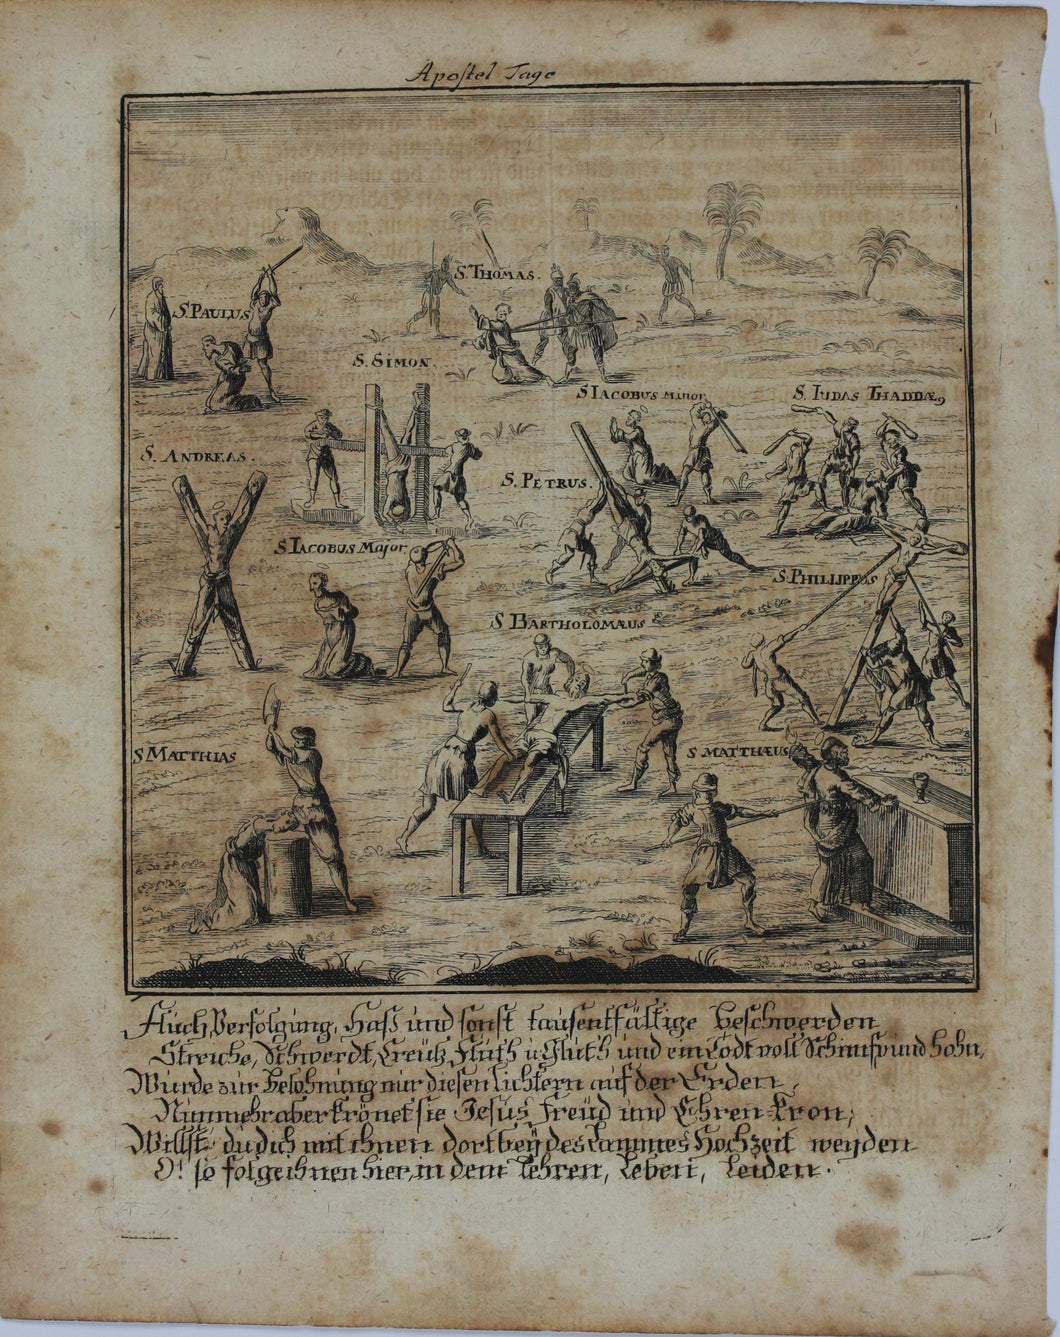 Apostel Tage
S. THOMAS.
S. PAULUS
S. SIMON.
S IACOBUS Minor
S. IUDAS THADDÆ9
S. ANDREAS.
S. PETRUS.
S IACOBUS Major
S. PHILLIPPUS
S BARTHOLOMÆUS
S MATTHIAS
S MATTHÆUS
Auch Verfolgung, Haß und sonst tausentfältige beschwerden
Streiche, Schwerdt, Creütz, Fluth u Gluth und ein Todt voll Schimpf und Hohn,
Wurde zur belohnung nur diesen lichtern auf der Erden,
Nunmehr aber krönet sie Jesus freüd und Ehren-kron;
Willst du dich mit ihnen dort beÿ des Lammes Hochzeit weÿden
O! so folge ihnen hier, in dem lehren, Leben, Leiden.